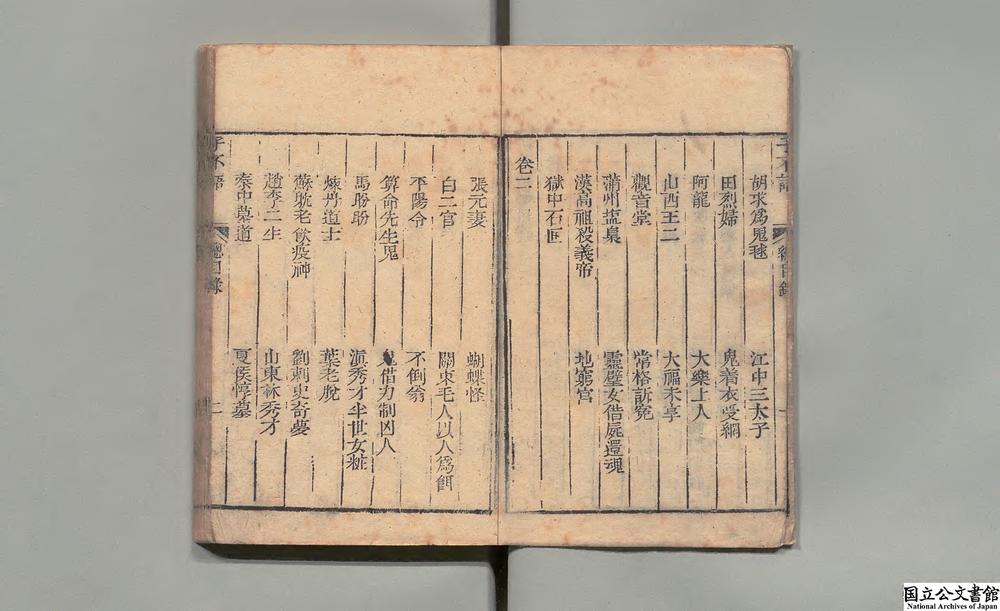 子不語 總目錄 一
胡求爲鬼毬 江中三太子
田烈婦 鬼着衣受網
阿龍 大樂上人
山西王二 大福未享
觀音堂 常格訴冤
蒲州塩梟 靈璧女借屍還魂
漢高祖殺義帝 地窮宮
獄中石匣
卷二
張元妻 蝴蝶怪
白二官 關東毛人以人爲餌
平陽令 不倒翁
算命先生鬼 鬼借力制凶人
馬盼盼 滇秀才半世女粧
煉丹道士 葉老脫
蘇耽老飲疫神 劉刺史奇夢
趙李二生 山東林秀才
秦中墓道 夏侯惇墓
子不語 總目錄 二
国立公文書館
National Archives of Japan